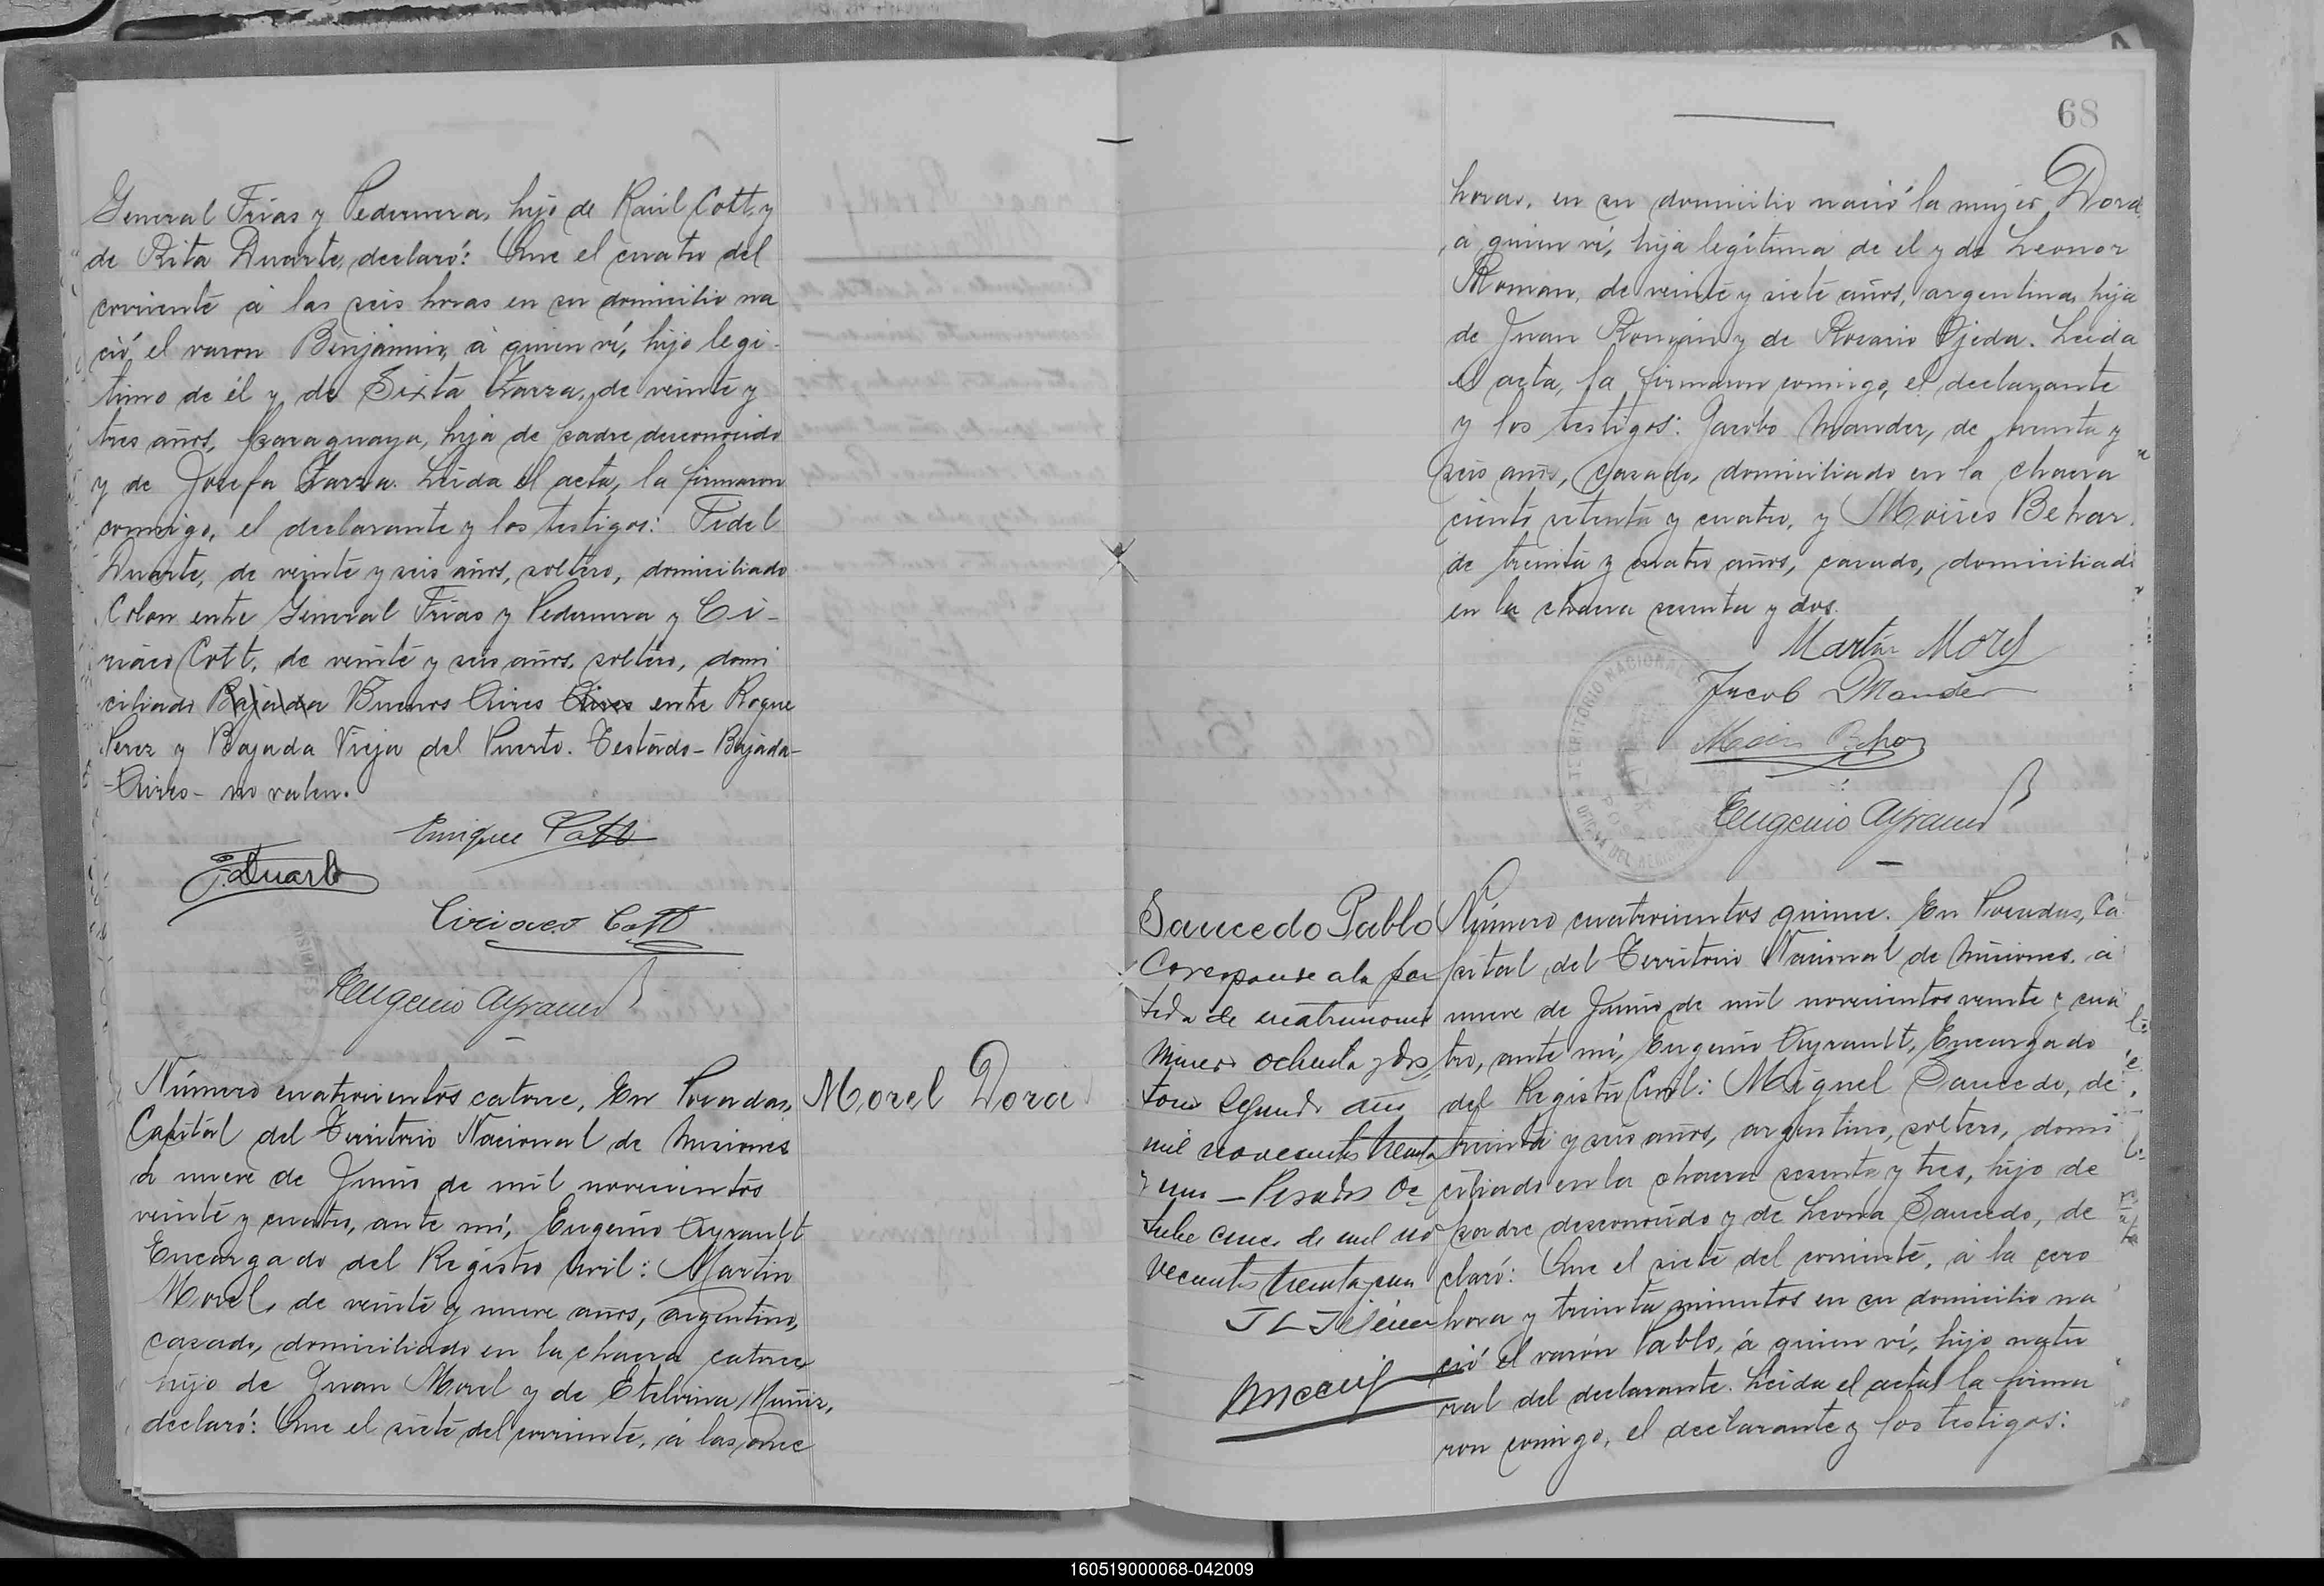 General Frias y Pedernera, hijo de Raúl Cott, y
de Rita Duarte, declaró: Que el cuatro del
corriente á las seis horas en su domicilio na
ció el varon Benjamin, á quien ví, hijo legi-
timo de él y de Sixta Zarza, de veinte y
tres años, paraguaya, hija de padre desconocido
y de Josefa Zarza. Leida el acta, la firmaron
conmigo, el declarante y los testigos: Fidel
Duarte, de veinte y seis años, soltero, domiciliado
Colon entre General Frias y Pedernera y Ci-
riaco Cott, de veinte y seis años, soltero, domi
ciliado Bajada Buenos Aires Aires entre Roque
Perez y Bajada Vieja del Puerto. Testado - Bajada -
- Aires - no valen.
Enrique Cott
F. Duarte
Ciriaco Cott
Eugenio Ayrault
Número cuatrocientos catorce. En Posadas,
Capital del Territorio Nacional de Misiones
á nueve de Junio de mil novecientos
veinte y cuatro, ante mí, Eugenio Ayrault
Encargado del Registro Civil: Martin
Morel, de veinte y nueve años, argentino,
casado, domiciliado en la chacra catorce
hijo de Juan Morel y de Etelvina Muñiz,
declaró: Que el siete del corriente, á las once
Morel Dora
68
horas, en su domicilio nació la mujer Dora,
á quien ví, hija legítima de el y de Leonor
Roman, de veinte y siete años, argentina, hija
de Juan Román y de Rosario Ojeda. Leida
el acta, la firmaron comigo, el declarante
y los testigos: Jacobo Mander, de treinta y
seis años, casado, domiciliado en la chacra
ciento setenta y cuatro, y Moises Behar,
de treinta y cuatro años, casado, domiciliado
en la chacra sesenta y dos.
Martin Morel
Jacob Mander
Moises Behar
TERRITORIO NACIONAL
OFICINA DEL REGISTRO
Eugenio Ayrault
Saucedo Pablo
Corresponde a la par
tida de matrimonio
número ochenta y dos,
tomo segundo año
mil novecientos treinta
y uno — Posadas Oc
tubre once de mil no
vecientos treinta y uno
Número cuatrocientos quince. En Posadas, Ca
pital del Territorio Nacional de Misiones, á
nueve de Junio de mil novecientos veinte y cua
tro, ante mí, Eugenio Ayrault, Encargado
del Registro Civil: Miguel Saucedo, de
treinta y seis años, argentino, soltero, domi
ciliado en la chacra sesenta y tres, hijo de
padre desconocido y de Leona Saucedo, de
claró: Que el siete del corriente, á la cero
hora y treinta minutos en su domicilio na
ció el varón Pablo, á quien ví, hijo natu
ral del declarante. Leida el acta, la firma
ron comigo, el declarante y los testigos:
160519000068-042009